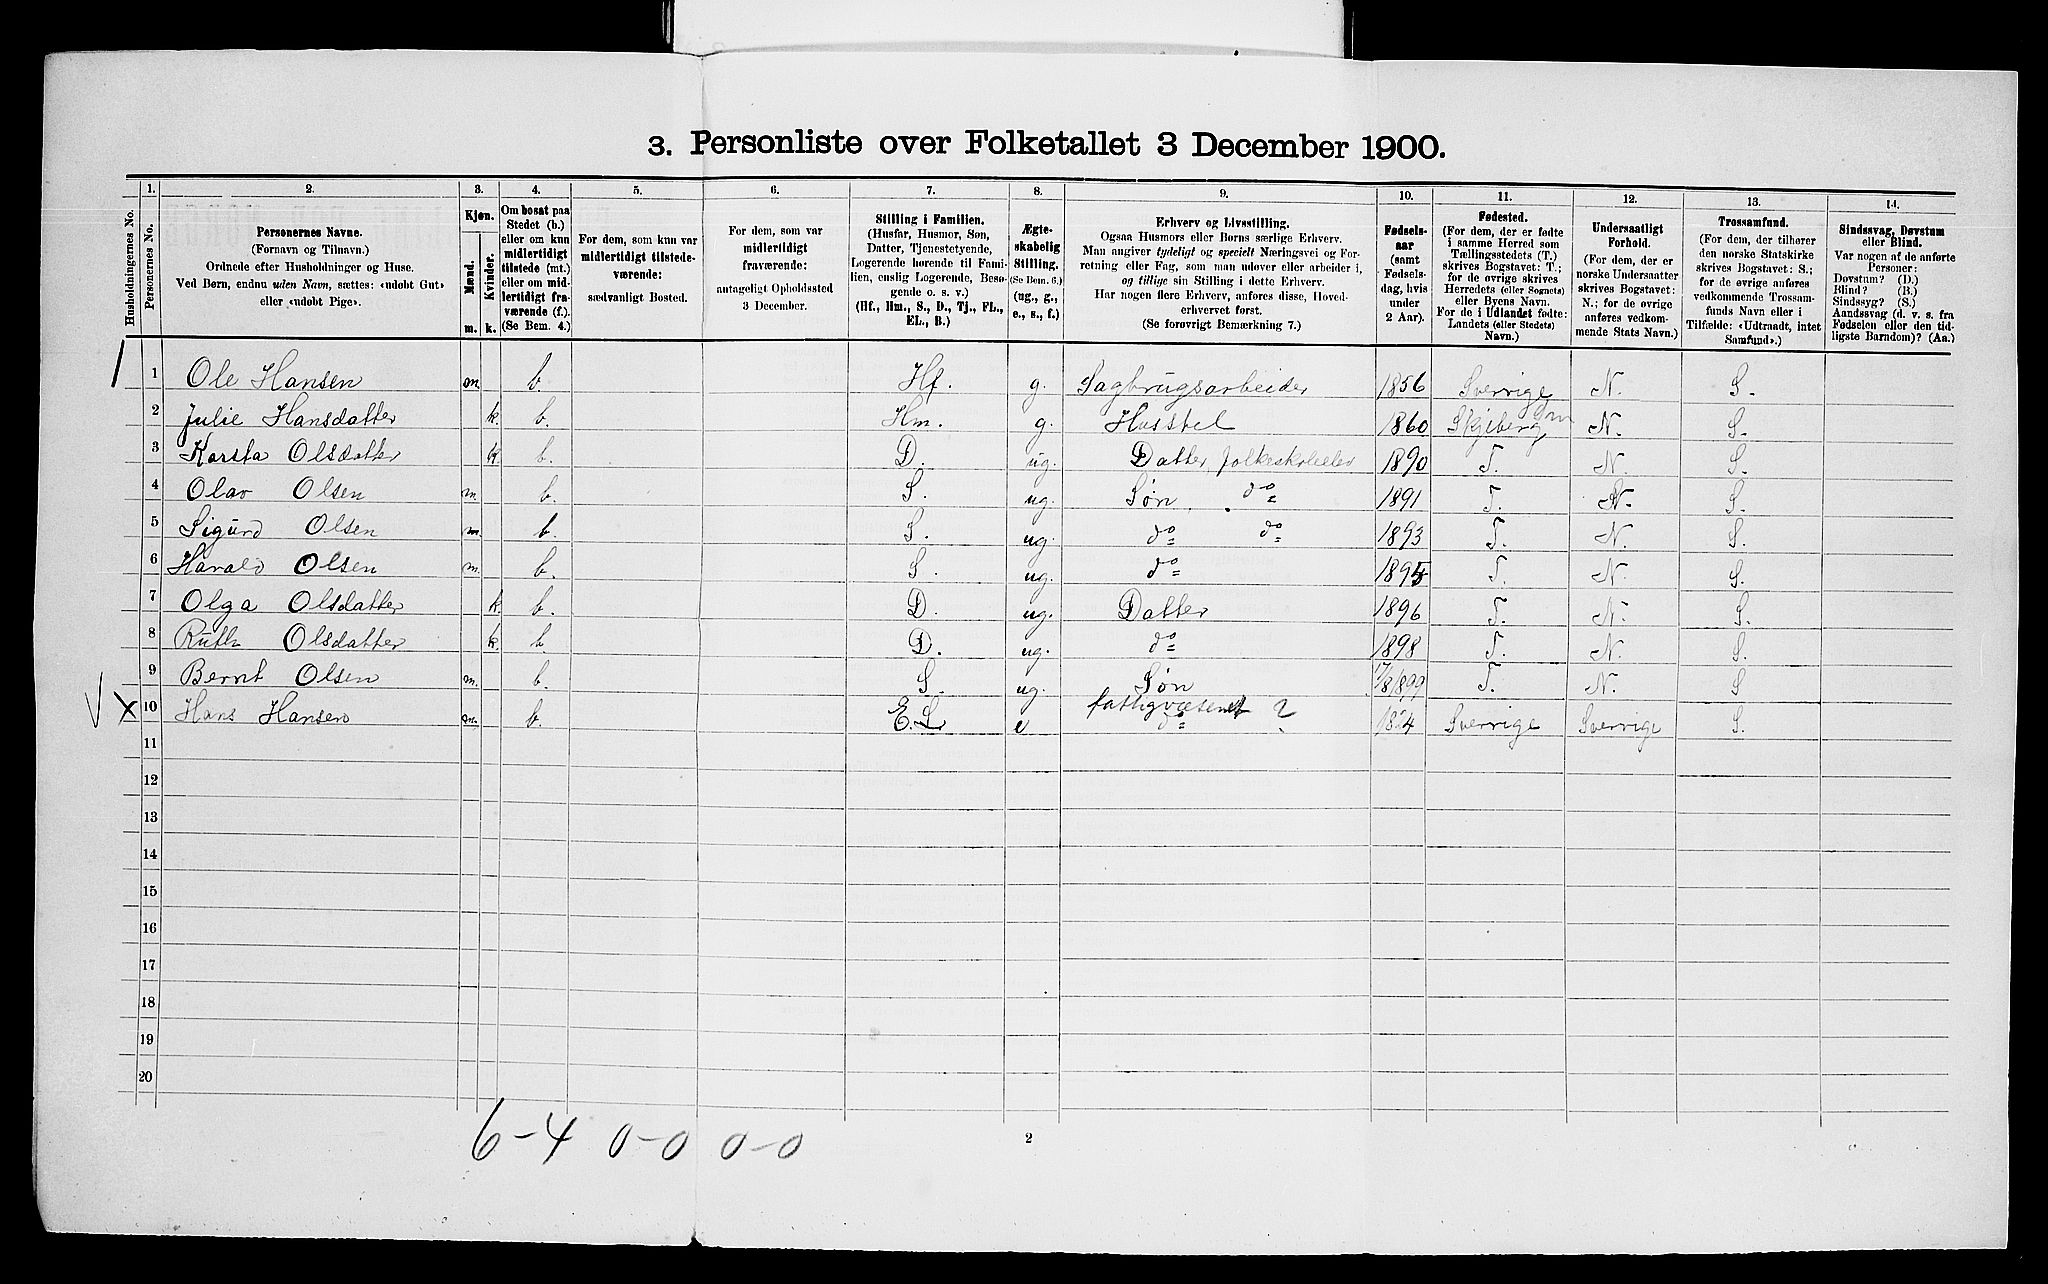 3. Personliste over Folketallet 3 December 1900.
1. 2. 3. 4. 5. 6. 7. 8. 9. 10. 11. 12. 13. 14.
Husholdningernes No.
Personernes No.
Personernes Navne.
(Fornavn og Tilnavn.)
Ordnede efter Husholdninger og Huse.
Ved Børn, endnu uden Navn, sættes: «udøbt Gut»
eller «udøbt Pige».
Kjøn.
Mænd.
Kvinder.
m. k.
Om bosat paa
Stedet (b.)
eller om kun
midlertidigt
tilstede (mt.)
eller om mid-
lertidigt fra-
værende (f.).
(Se Bem. 4.)
For dem, som kun var
midlertidigt tilstede-
værende:
sædvanligt Bosted.
For dem, som var
midlertidigt
fraværende:
antageligt Opholdssted
3 December.
Stilling i Familien.
(Husfar, Husmor, Søn,
Datter, Tjenestetyende,
Logerende hørende til Fami-
lien, enslig Logerende, Besø-
gende o. s. v.)
(Hf., Hm., S., D., Tj., FL.,
EL., B.)
Ægte-
skabelig
Stilling.
(Se Bem. 6.)
(ug., g.,
e., s., f.)
Erhverv og Livsstilling.
Ogsaa Husmors eller Børns særlige Erhverv.
Man angiver tydeligt og specielt Næringsvei og For-
retning eller Fag, som man udøver eller arbeider i,
og tillige sin Stilling i dette Erhverv.
Har nogen flere Erhverv, anføres disse, Hoved-
erhvervet først.
(Se forøvrigt Bemærkning 7.)
Fødsels-
aar
(samt
Fødsels-
dag, hvis
under
2 Aar).
Fødested.
(For dem, der er fødte
i samme Herred som
Tællingsstedets (T.)
skrives Bogstavet: T.;
for de øvrige skrives
Herredets (eller Sognets)
eller Byens Navn.
For de i Udlandet fødte:
Landets (eller Stedets)
Navn.)
Undersaatligt
Forhold.
(For dem, der er
norske Undersaatter
skrives Bogstavet:
N.; for de øvrige
anføres vedkom-
mende Stats Navn.)
Trossamfund.
(For dem, der tilhører
den norske Statskirke
skrives Bogstavet: S.;
for de øvrige anføres
vedkommende Trossam-
funds Navn eller i
Tilfælde: «Udtraadt, intet
Samfund».)
Sindssvag, Døvstum
eller Blind.
Var nogen af de anførte
Personer:
Døvstum? (D.)
Blind? (B.)
Sindssyg? (S.)
Aandssvag (d. v. s. fra
Fødselen eller den tid-
ligste Barndom)? (Aa.)
1 1 Ole Hansen m. b. Hf. g. Sagbrugsarbeider 1856 Sverrige N. S.
2 Julie Hansdatter k. b. Hm. g. Husstel 1860 Skjeberg N. S.
3 Karsta Olsdatter k b. D. ug. Datter, folkeskoleelev 1890 T. N. S.
4 Olav Olsen m. b. S. ug. Søn do 1891 T. N. S.
5 Sigurd Olsen m. b. S. ug. do do 1893 T. N. S.
6 Harald Olsen m. b. S. ug. do 1895 T. N. S.
7 Olga Olsdatter k. b. D. ug. Datter 1896 T. N. S.
8 Ruth Olsdatter k. b D. ug. do 1898 T. N. S.
9 Bernt Olsen m. b. S. ug. Søn 17/8 1899 T. N. S
V x 10 Hans Hansen m. b. E. L e fattigvæsenet ? do Sverrige Sverrige S.
11
12
13
14
15
16
17
18
19
20
6-4 0-0 0-0
2